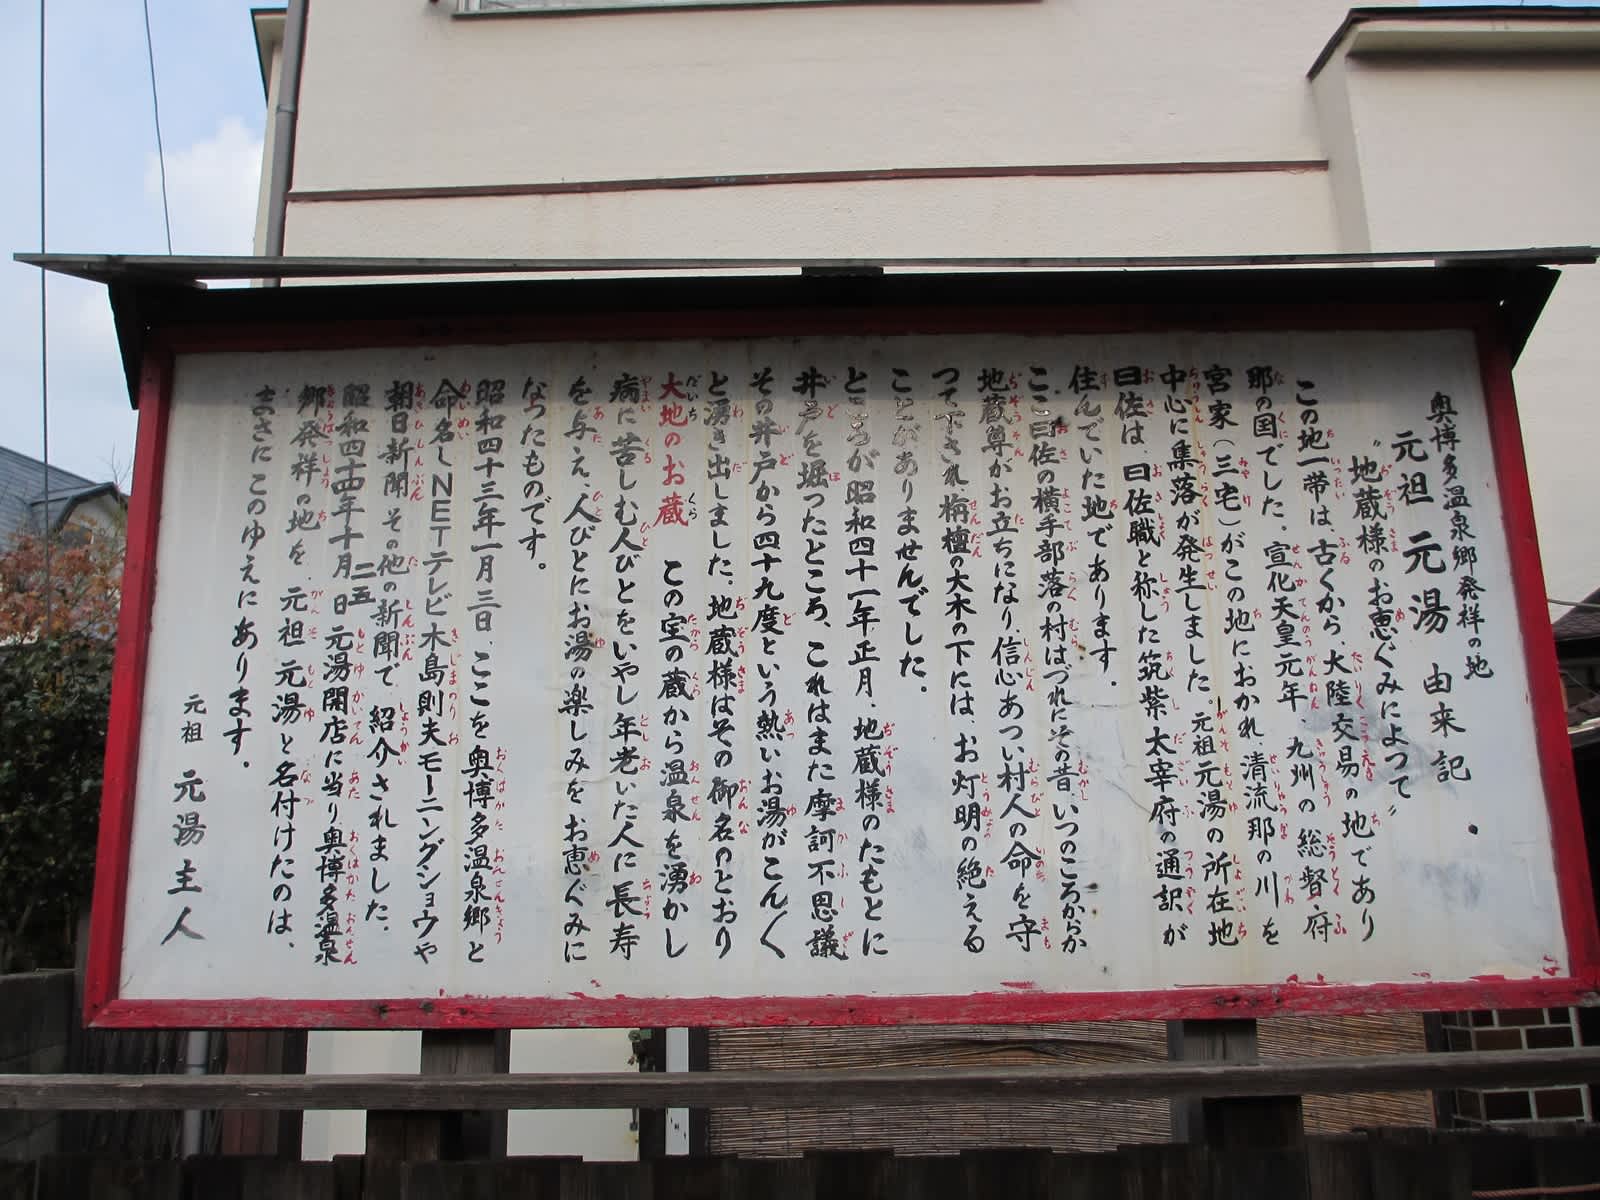 奥博多温泉郷発祥の地
元祖 元湯 由来記
〝地蔵様のお恵ぐみによって〟
この地一帯は、古くから、大陸交易の地であり
那の国でした。宣化天皇元年、九州の総督府
宮家(三宅)がこの地におかれ、清流那の川を
中心に集落が発生しました。元祖元湯の所在地
曰佐は、曰佐職と称した筑紫太宰府の通訳が
住んでいた地であります。
ここ曰佐の横手部落の村はづれにその昔いつのころからか
地蔵尊がお立ちになり、信心あつい村人の命を守
って下され栴檀の大木の下には、お灯明の絶える
ことがありませんでした。
ところが昭和四十一年正月、地蔵様のたもとに
井戸を堀ったところ、これはまた摩訶不思議
その井戸から四十九度という熱いお湯がこんく
と湧き出しました。地蔵様はその御名のとおり
大地のお蔵 この宝の蔵から温泉を湧かし
病に苦しむ人びとをいやし年老いた人に長寿
を与え、人びとにお湯の楽しみをお恵ぐみに
なったものです。
昭和四十三年一月三日、ここを奥博多温泉郷と
命名しNETテレビ木島則夫モーニングショウや
朝日新聞その他の新聞で紹介されました。
昭和四十四年十月二五日元湯開店に当り奥博多温泉
郷発祥の地を、元祖元湯と名付けたのは、
まさにこのゆえにあります。
元祖 元湯主人